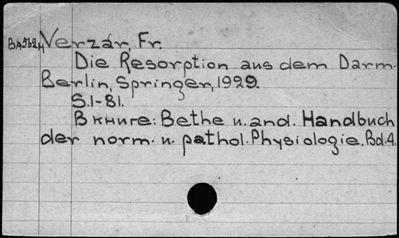 Verzár, Fr.
Die Resorption aus dem Darm.
Berlin, Springer, 1929.
S.1-81.
В книге: Bethe u. and. Handbuch
der norm. u. pathol. Physiologie. Bd.4.